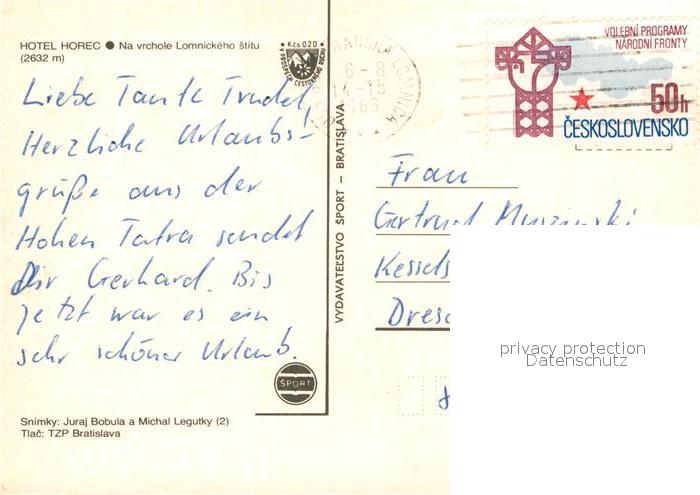 HOTEL HOREC ● Na vrchole Lomnického štítu
(2632 m)
Kčs 0,20
VOLEBNÍ PROGRAMY
NÁRODNÍ FRONTY
50h
ČESKOSLOVENSKO
6-8
14-15
Liebe Tante Trudel,
Herzliche Urlaubs-
grüße aus der
Hohen Tatra sendet
Dir Gerhard. Bis
jetzt war es ein
sehr schöner Urlaub.
VYDAVATEĽSTVO ŠPORT – BRATISLAVA
Frau
Gertrud
Kessels
Dresd
ŠPORT
Snímky: Juraj Bobula a Michal Legutky (2)
Tlač: TZP Bratislava
privacy protection
Datenschutz